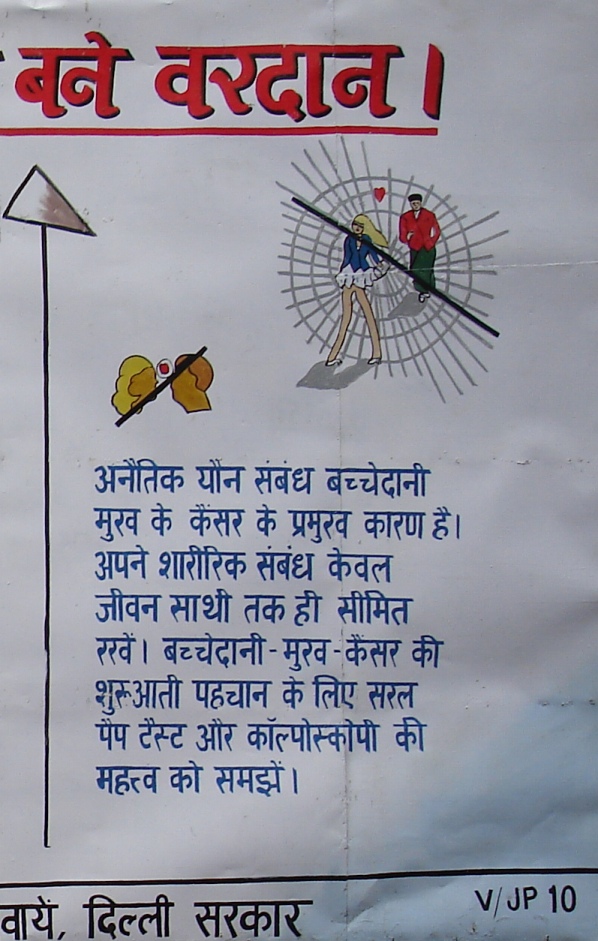 बने वरदान।
अनैतिक यौन संबंध बच्चेदानी
मुख के कैंसर के प्रमुख कारण है।
अपने शारीरिक संबंध केवल
जीवन साथी तक ही सीमित
रखें। बच्चेदानी-मुख-कैंसर की
शुरूआती पहचान के लिए सरल
पैप टैस्ट और कॉल्पोस्कोपी की
महत्त्व को समझें।
वायें, दिल्ली सरकार
V/JP 10